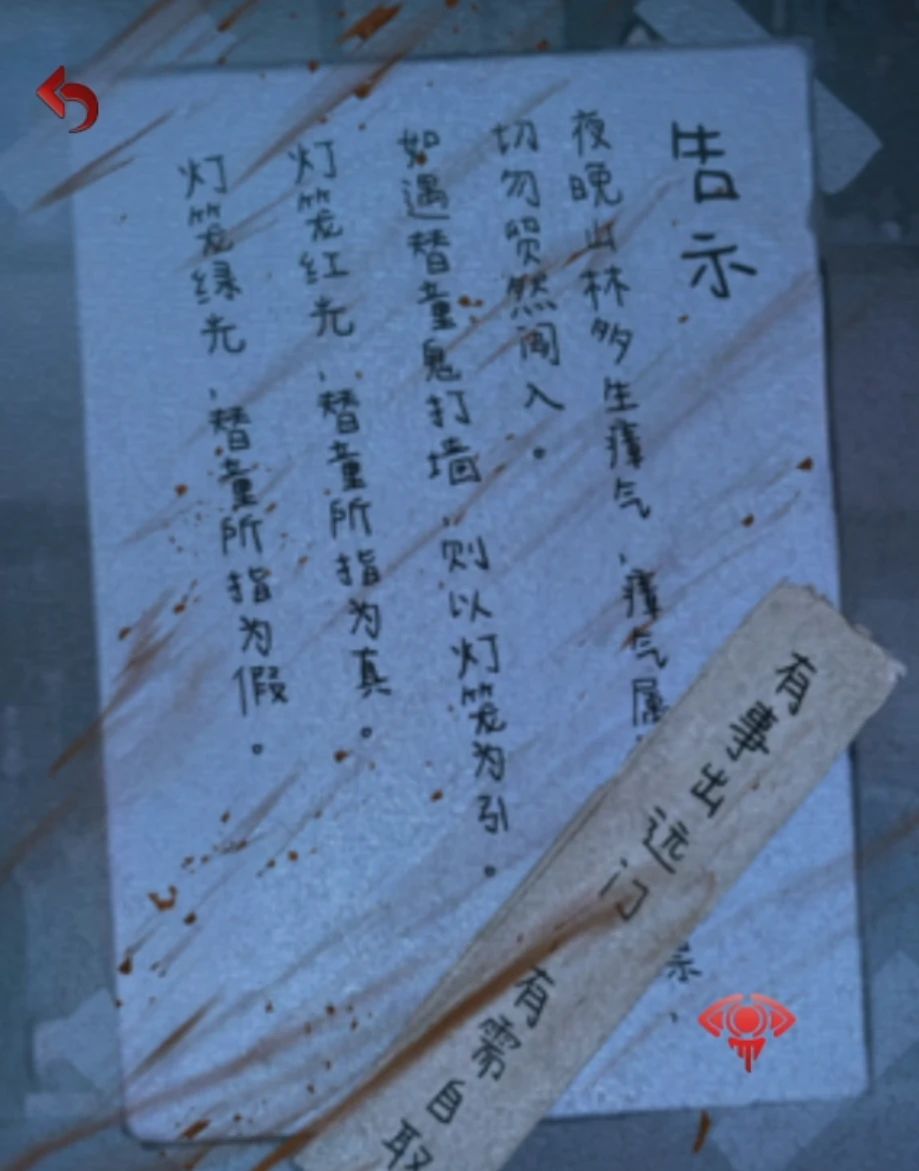 告示
夜晚山林多生瘴气，瘴气属
切勿贸然闯入。
如遇替童鬼打墙，则以灯笼为引。
灯笼红光，替童所指为真。
灯笼绿光，替童所指为假。
有事出远门
有需自取